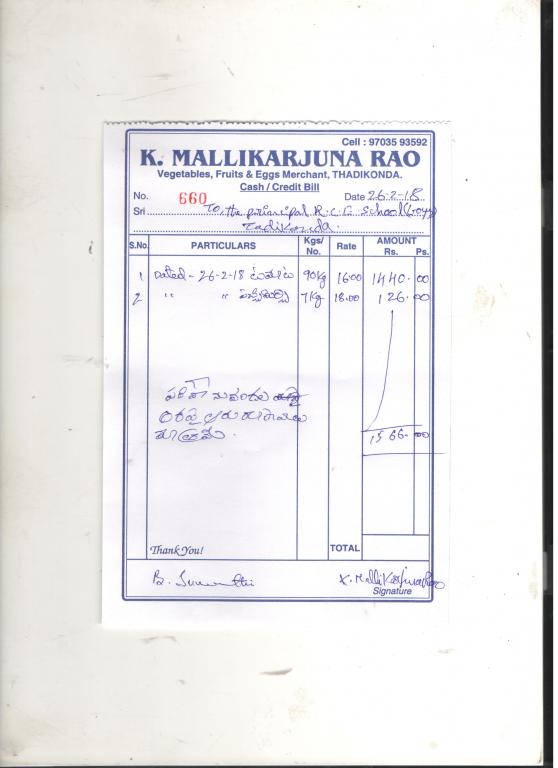 Cell : 97035 93592
K. MALLIKARJUNA RAO
Vegetables, Fruits & Eggs Merchant, THADIKONDA.
Cash / Credit Bill
No. 660 Date 26-2-18
Sri To, the principal R.C.C. School (boys)
Tadikonda.
S.No. PARTICULARS Kgs/ No. Rate AMOUNT Rs. Ps.
1 Dated - 26-2-18 90kg 16.00 1440.00
2 " " 7kg 18.00 126.00
1566.00
Thank You! TOTAL
K. Mallikarjuna Rao
Signature